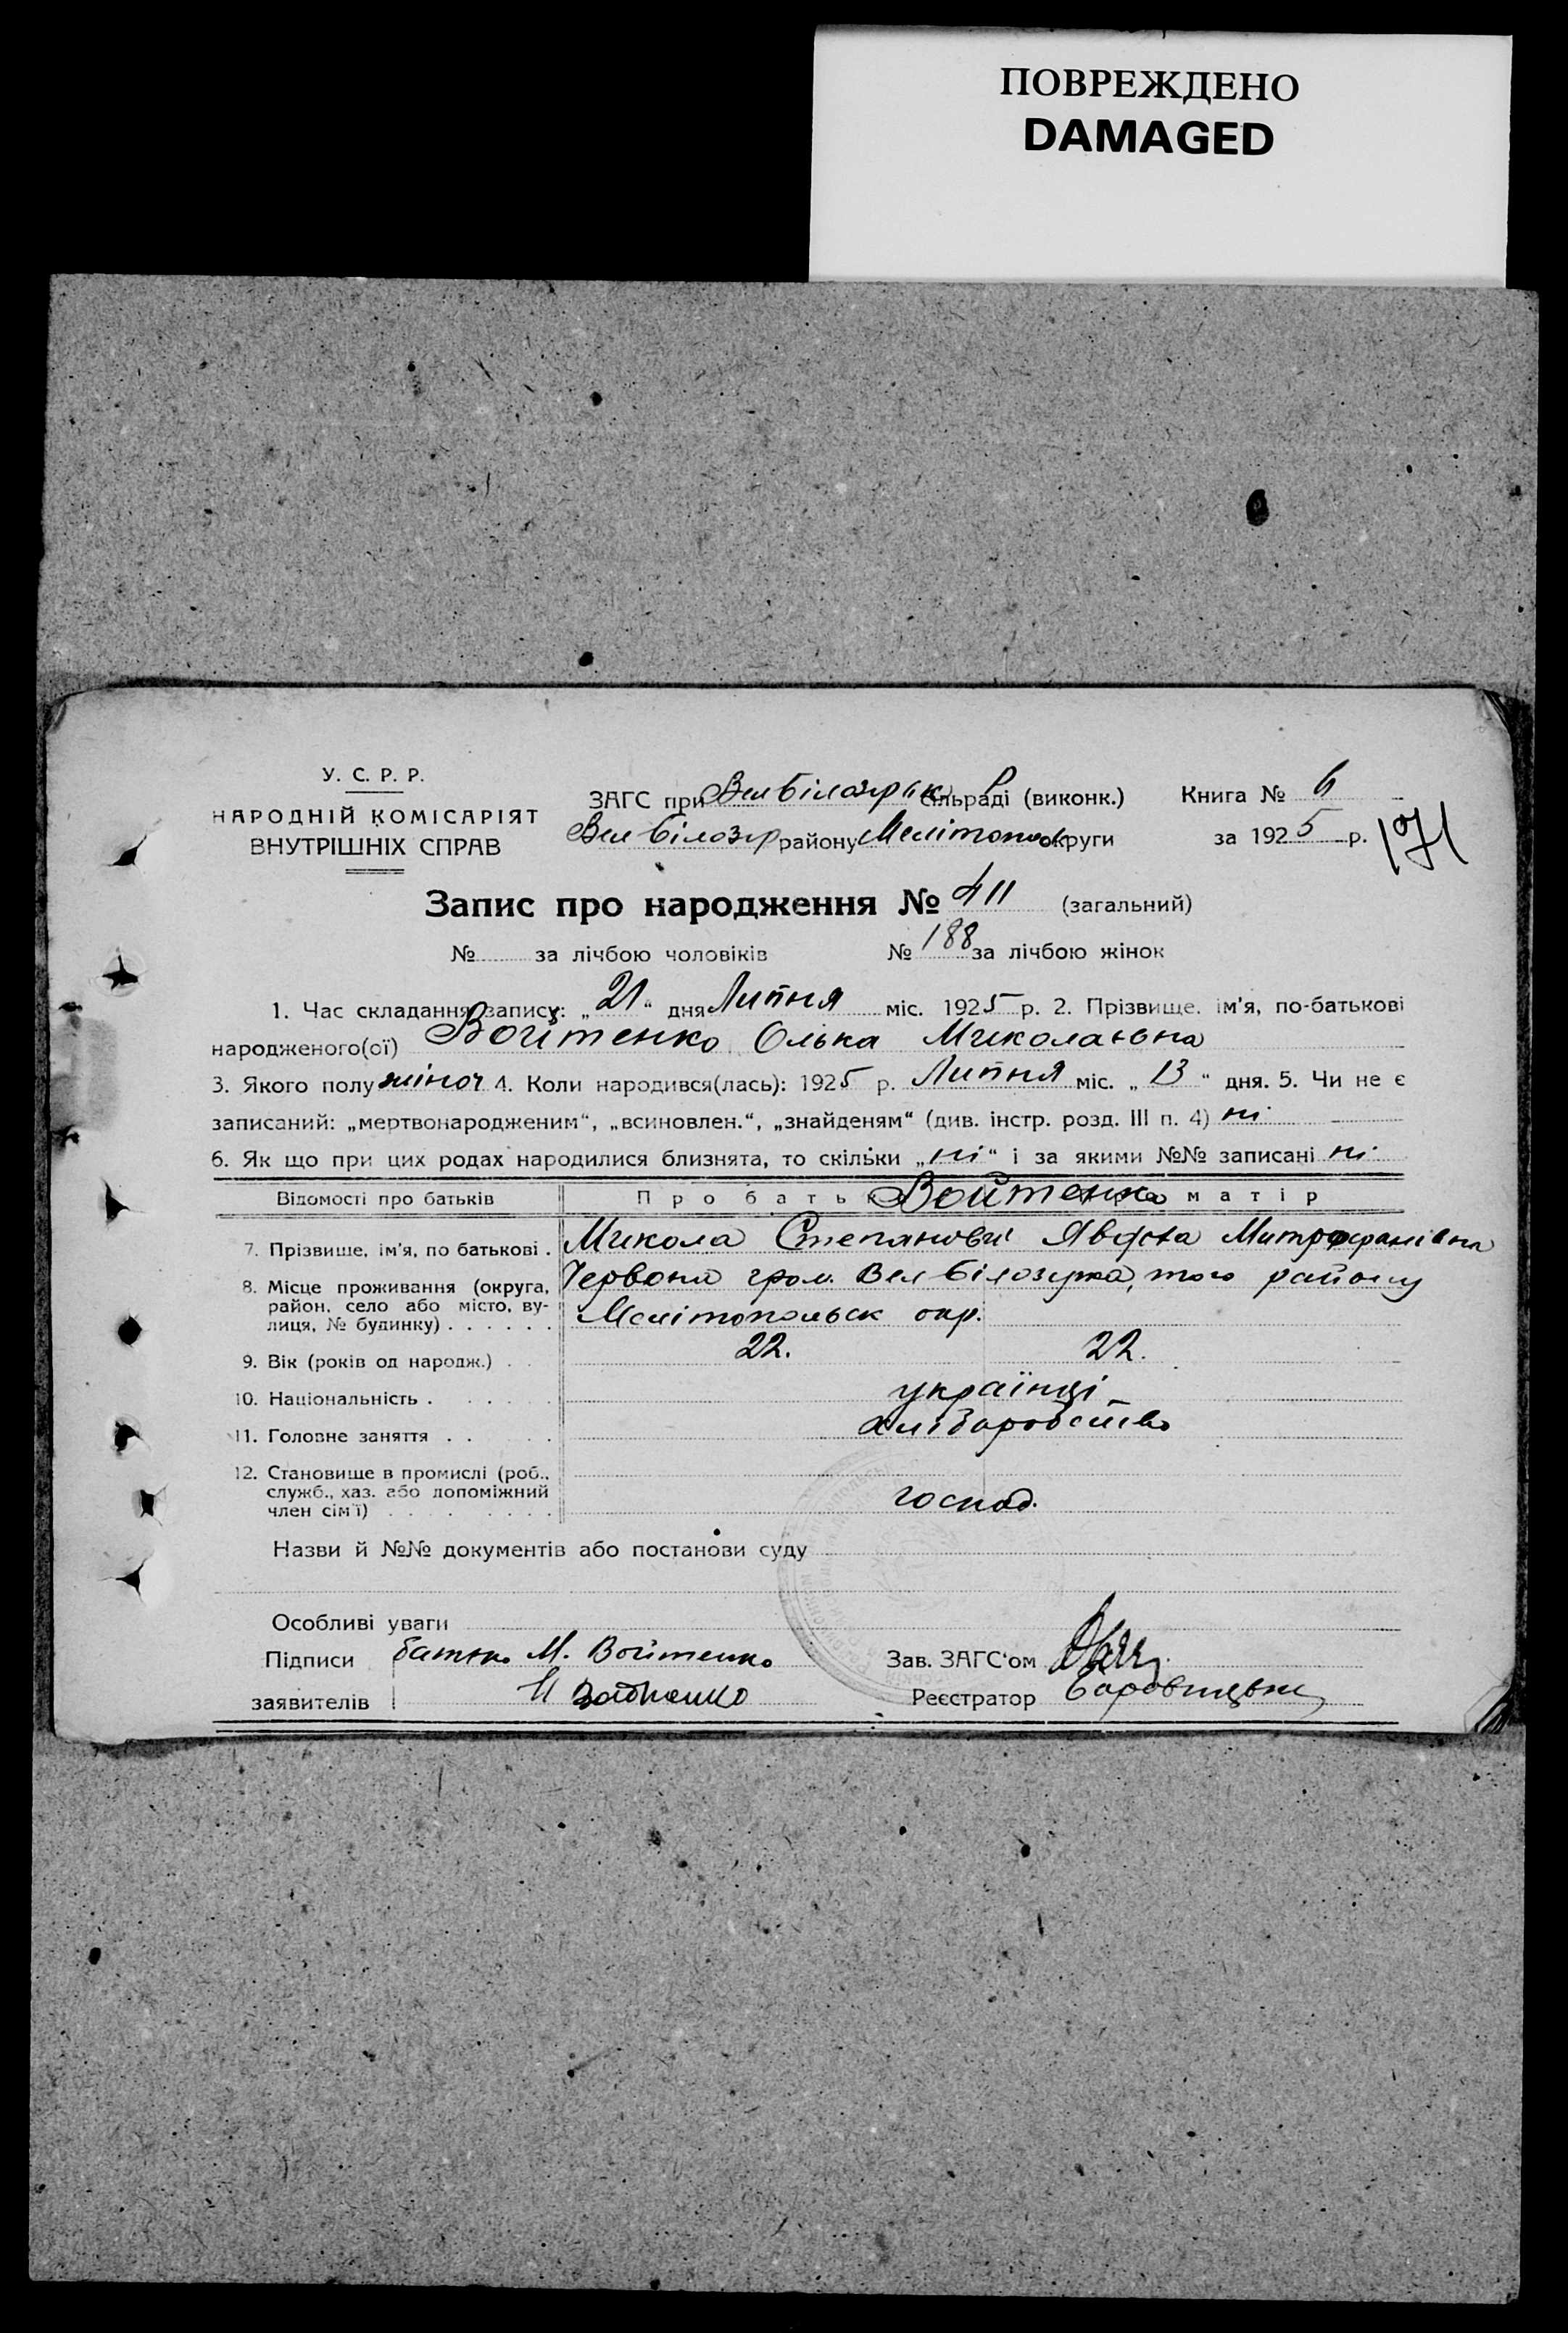 ПОВРЕЖДЕНО
DAMAGED
У. С. Р. Р.
НАРОДНІЙ КОМІСАРІЯТ
ВНУТРІШНІХ СПРАВ
ЗАГС при Вел Білозірськ сільраді (виконк.)
Вел Білозір району Мелітопол округи
Книга № 6
за 1925 р.
171
Запис про народження № 411 (загальний)
№ за лічбою чоловіків № 188 за лічбою жінок
1. Час складання запису: „21“ дня Липня міс. 1925 р. 2. Прізвище, ім'я, по-батькові
народженого(ої) Войтенко Олька Миколаєвна
3. Якого полу жіноч 4. Коли народився(лась): 1925 р. Липня міс. „13“ дня. 5. Чи не є
записаний: „мертвонародженим“, „всиновлен.“, „знайденям“ (див. інстр. розд. III п. 4) ні
6. Як що при цих родах народилися близнята, то скільки „ні“ і за якими №№ записані ні
Відомості про батьків Про батька Войтенко матір
7. Прізвище, ім'я, по батькові . Микола Степанович Митрофанівна
8. Місце проживання (округа, Червона гром. Вел Білозірка, того району
район, село або місто, ву-
лиця, № будинку) . . . . . . Мелітопольск окр.
9. Вік (років од народж.) . . 22. 22.
10. Національність . . . . . . українці
11. Головне заняття . . . . хліборобство
12. Становище в промислі (роб.,
служб., хаз. або допоміжний
член сім'ї) . . . . . . . . господ.
Назви й №№ документів або постанови суду
Особливі уваги
Підписи батько М. Войтенко Зав. ЗАГС'ом
заявителів Реєстратор